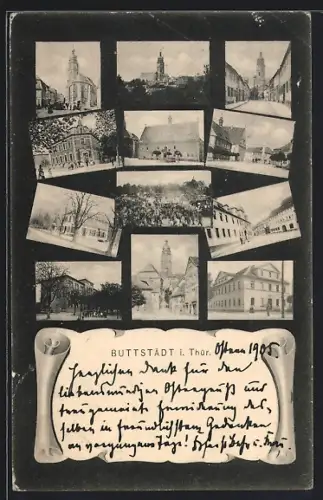 BUTTSTÄDT i. Thür. Ostern 1905.
Herzlichen Dank für den
liebenswürdigen Ostergruß und
treugemeinte Erwiderung des-
selben in freundlichstem Gedenken
an vergangene Tage!